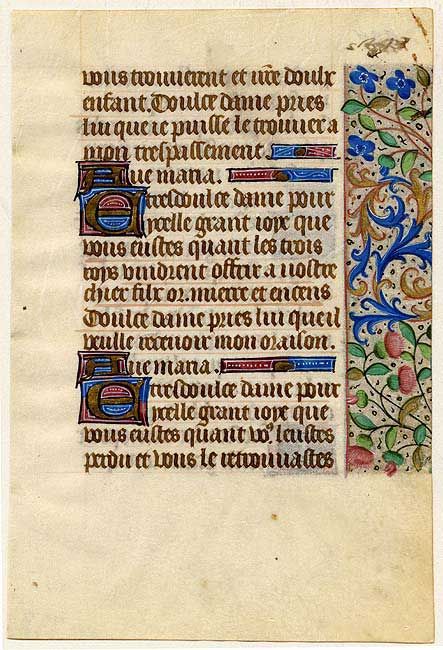 vous trouverent et vr̃e doulx
enfant. Doulce dame pries
lui que ie puisse le trouuer a
mon trespassement.
Aue maria.
E tresdoulce dame pour
ycelle grant ioye que
vous eustes quant les trois
roys vindrent offrir a nostre
chier filx or. mierre et encens
Doulce dame pries lui que il
veulle receuoir mon oraison.
Aue maria.
E tresdoulce dame pour
ycelle grant ioye que
vous eustes quant vo9 leustes
perdu et vous le retrouuastes